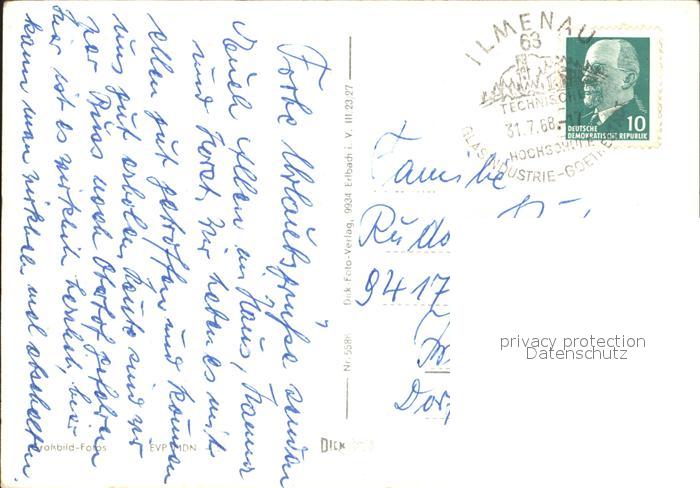 Frohe Urlaubsgrüße senden
Euch allen im Haus, Hanna
und Horst. Wir haben es mit
allem gut getroffen und können
uns gut erholen. Heute sind wir
per Bus nach Oberhof gefahren
hier ist es wirklich herrlich, hier
kann man wirklich mal abschalten.
ILMENAU
63
TECHNISCHE
31.7.68.-17
HOCHSCHULE
GLASINDUSTRIE-GOETHE
DEUTSCHE
DEMOKRATISCHE REPUBLIK
10
Familie
Rudo
9417
Dor
Nr. 5586
Dick Foto-Verlag, 9934 Erlbach i. V. III.23.27
privacy protection
Datenschutz
EVP MDN
DICK